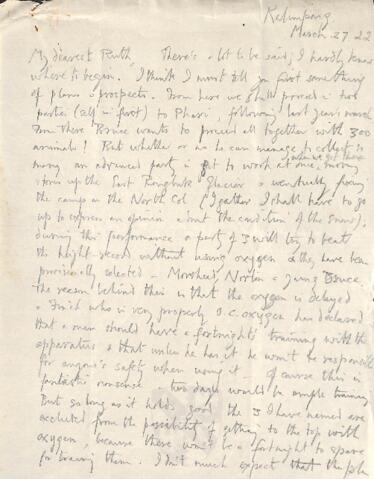 Kalimpong
March 27 22
My dearest Ruth, There's a lot to be said; I hardly know
where to begin. I think I must tell you first something
of plans & prospects. From here we shall proceed in two
parties (self in first) to Phari, following last year's march
From there Bruce wants to proceed all together with 300
animals! But whether or no he can manage to collect so
many an advanced party is to get to work at once, when we get there
stores up the East Rongbuk Glacier & eventually fixing
the camp on the North Col (I gather I shall have to go
up to express an opinion about the condition of the snow).
during this performance a party of 3 will try to beat
the height record without using oxygen & they have been
provisionally selected – Morshead, Norton &
the reason behind this is that the oxygen is delayed
& Finch who is very properly o.c. oxygen has declared
that a man should have a fortnight's training with the
apparatus & that unless he has it he won't be responsible
for anyone's safety when using it. Of course this is
fantastic nonsense – two days would be ample training
But so long as it holds good the 3 I have named are
excluded from the possibility of getting to the top with
oxygen, because there won't be a fortnight to spare
for training them. I don't much expect that the plan